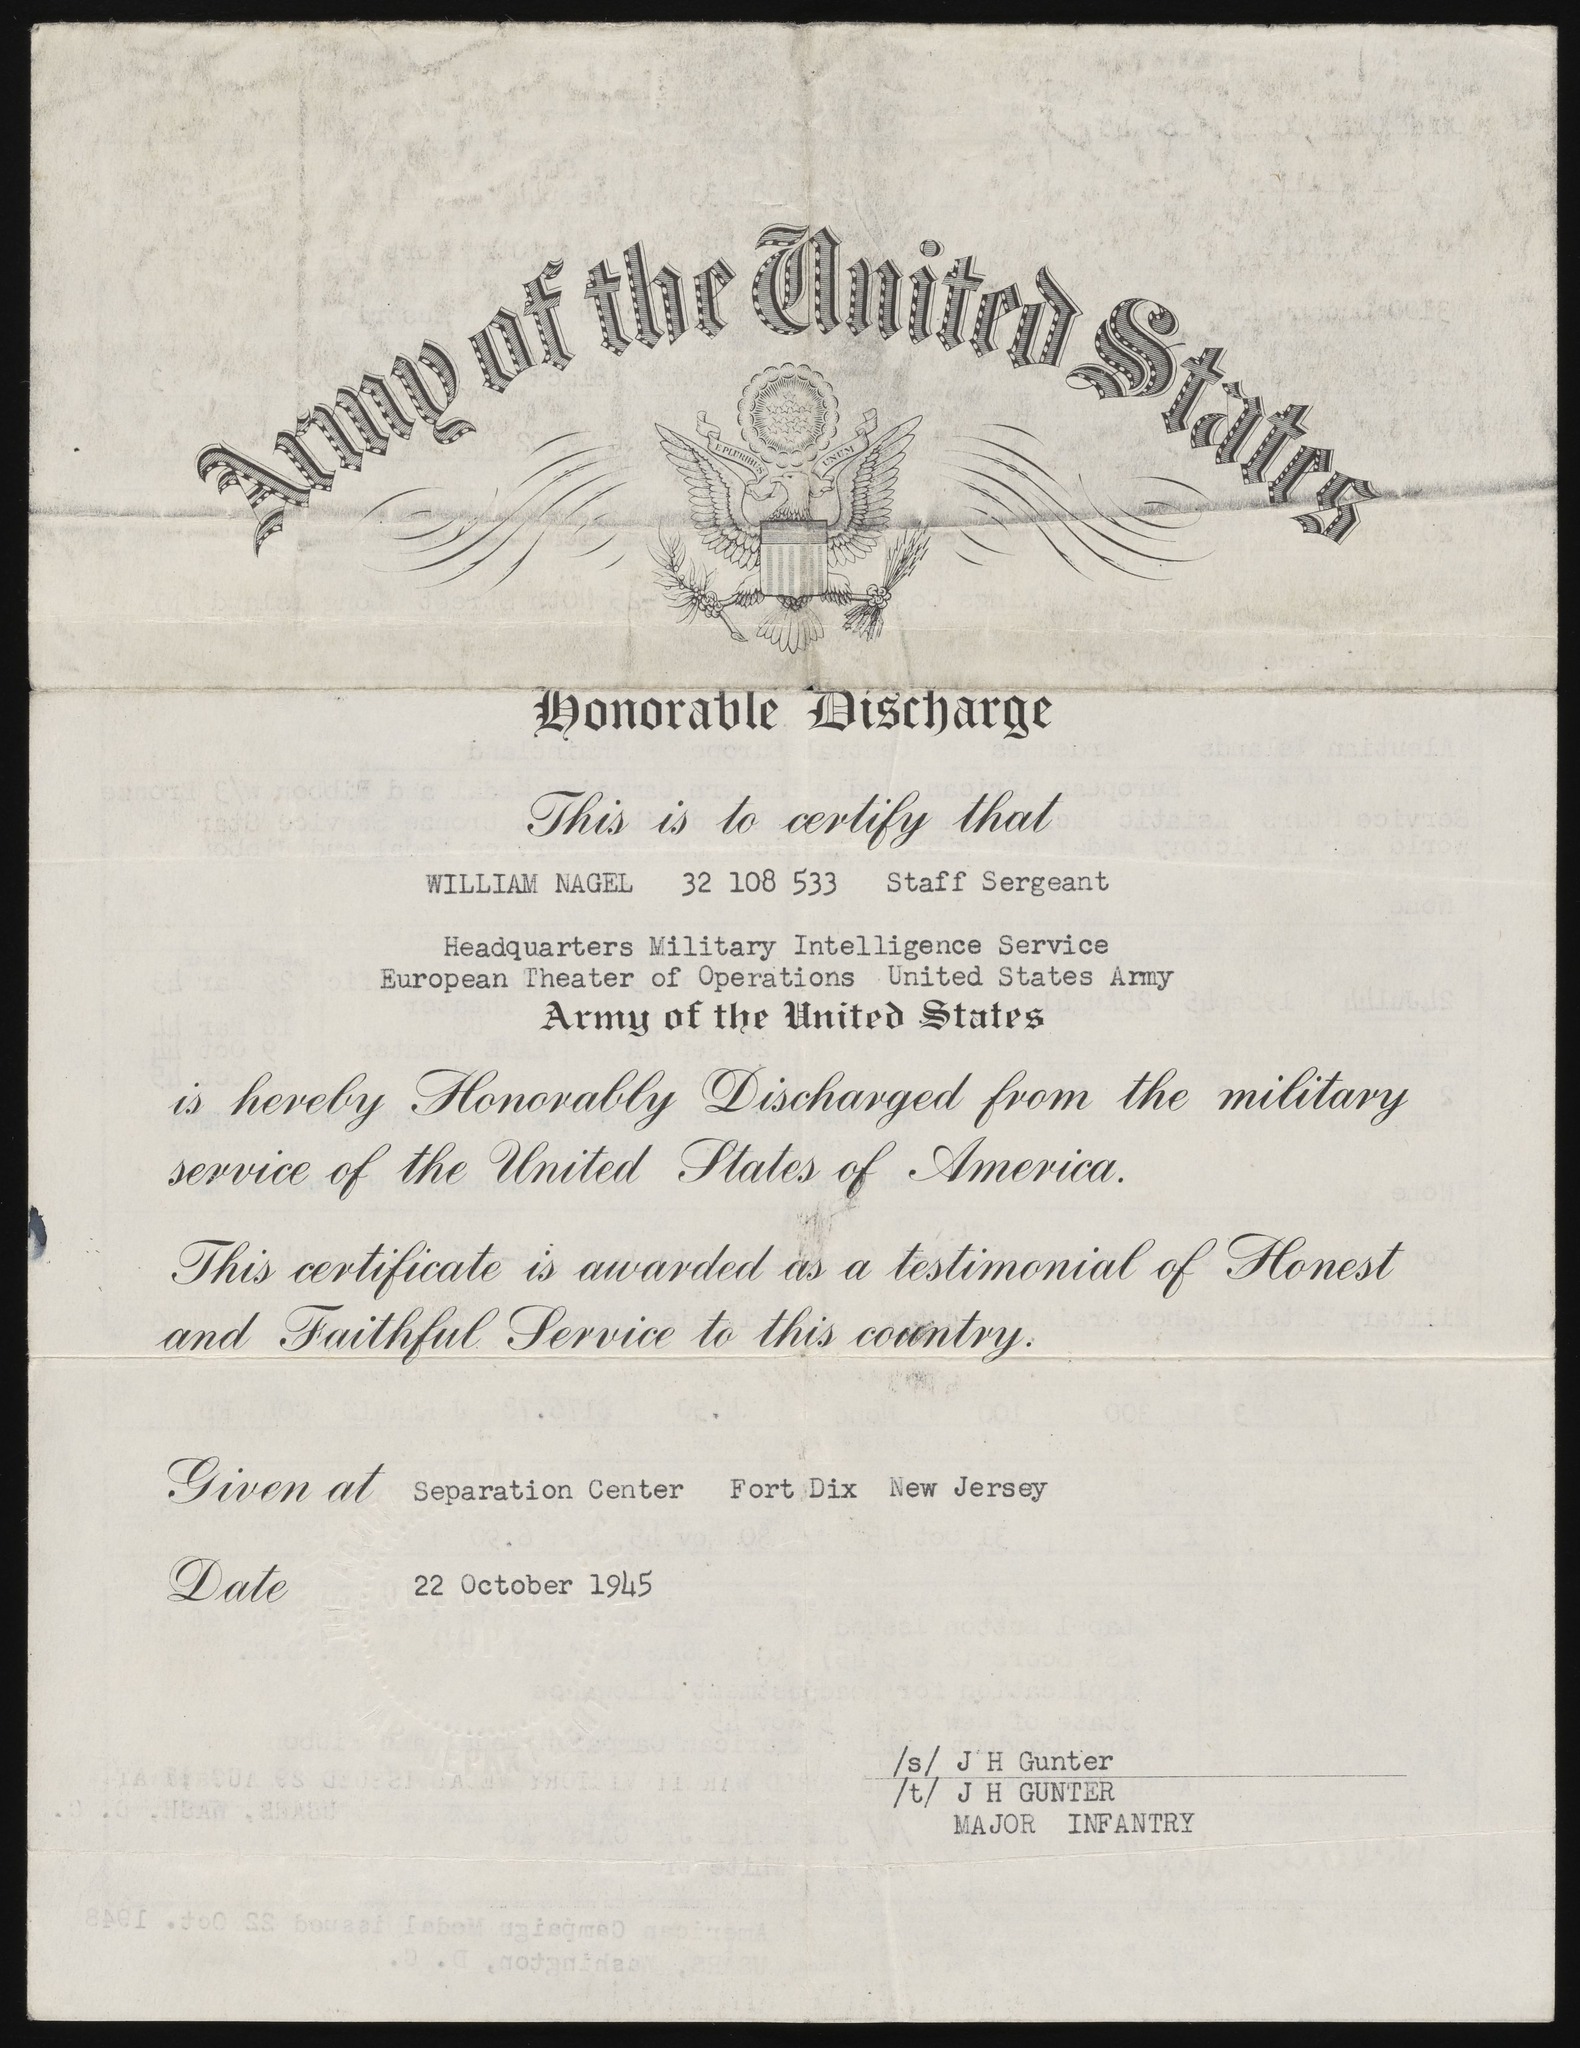 Army of the United States
E PLURIBUS UNUM
Honorable Discharge
This is to certify that
WILLIAM NAGEL 32 108 533 Staff Sergeant
Headquarters Military Intelligence Service
European Theater of Operations United States Army
Army of the United States
is hereby Honorably Discharged from the military
service of the United States of America.
This certificate is awarded as a testimonial of Honest
and Faithful Service to this country.
Given at Separation Center Fort Dix New Jersey
Date 22 October 1945
/s/ J H Gunter
/t/ J H GUNTER
MAJOR INFANTRY